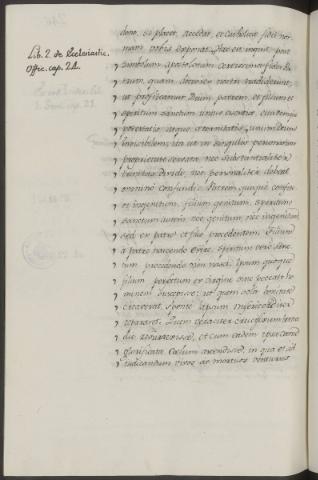 Lib. 2. de Ecclesiastic.
Offic. cap. 24.
dono, si placet, accedat, et catholicæ fidei nor-
mam vobis exponat. Hæc est inquit, post
symbolum apostolorum certissima fides
quam doctores nostri tradiderunt,
ut profiteamur Deum patrem, et filium et
spiritum sanctum unius essentiæ, ejusdemque
potestatis, atque æternitatis, unum Deum
invisibilem, ita ut in singulis personarum
proprietate servata, nec substantialiter
trinitas dividi, nec personaliter debeat
omnino confundi. Patrem quoque confiteri
et ingenitum, filium genitum, spiritum
sanctum autem nec genitum, nec ingenitum
sed ex patre et filio procedentem. Filium
a patre nascendo
procedendo non nasci. Ipsum quoque
filium perfectum ex virgine sine peccato ho-
minem suscepisse; ut quem sola bonitate
creaverat, sponte lapsum misericorditer
repararet. Quem veraciter crucifixum tertia
die resurrexisse, et cum eadem ipsa carne
glorificata cœlum ascendisse, in qua et ad
judicandum vivos ac mortuos venturus